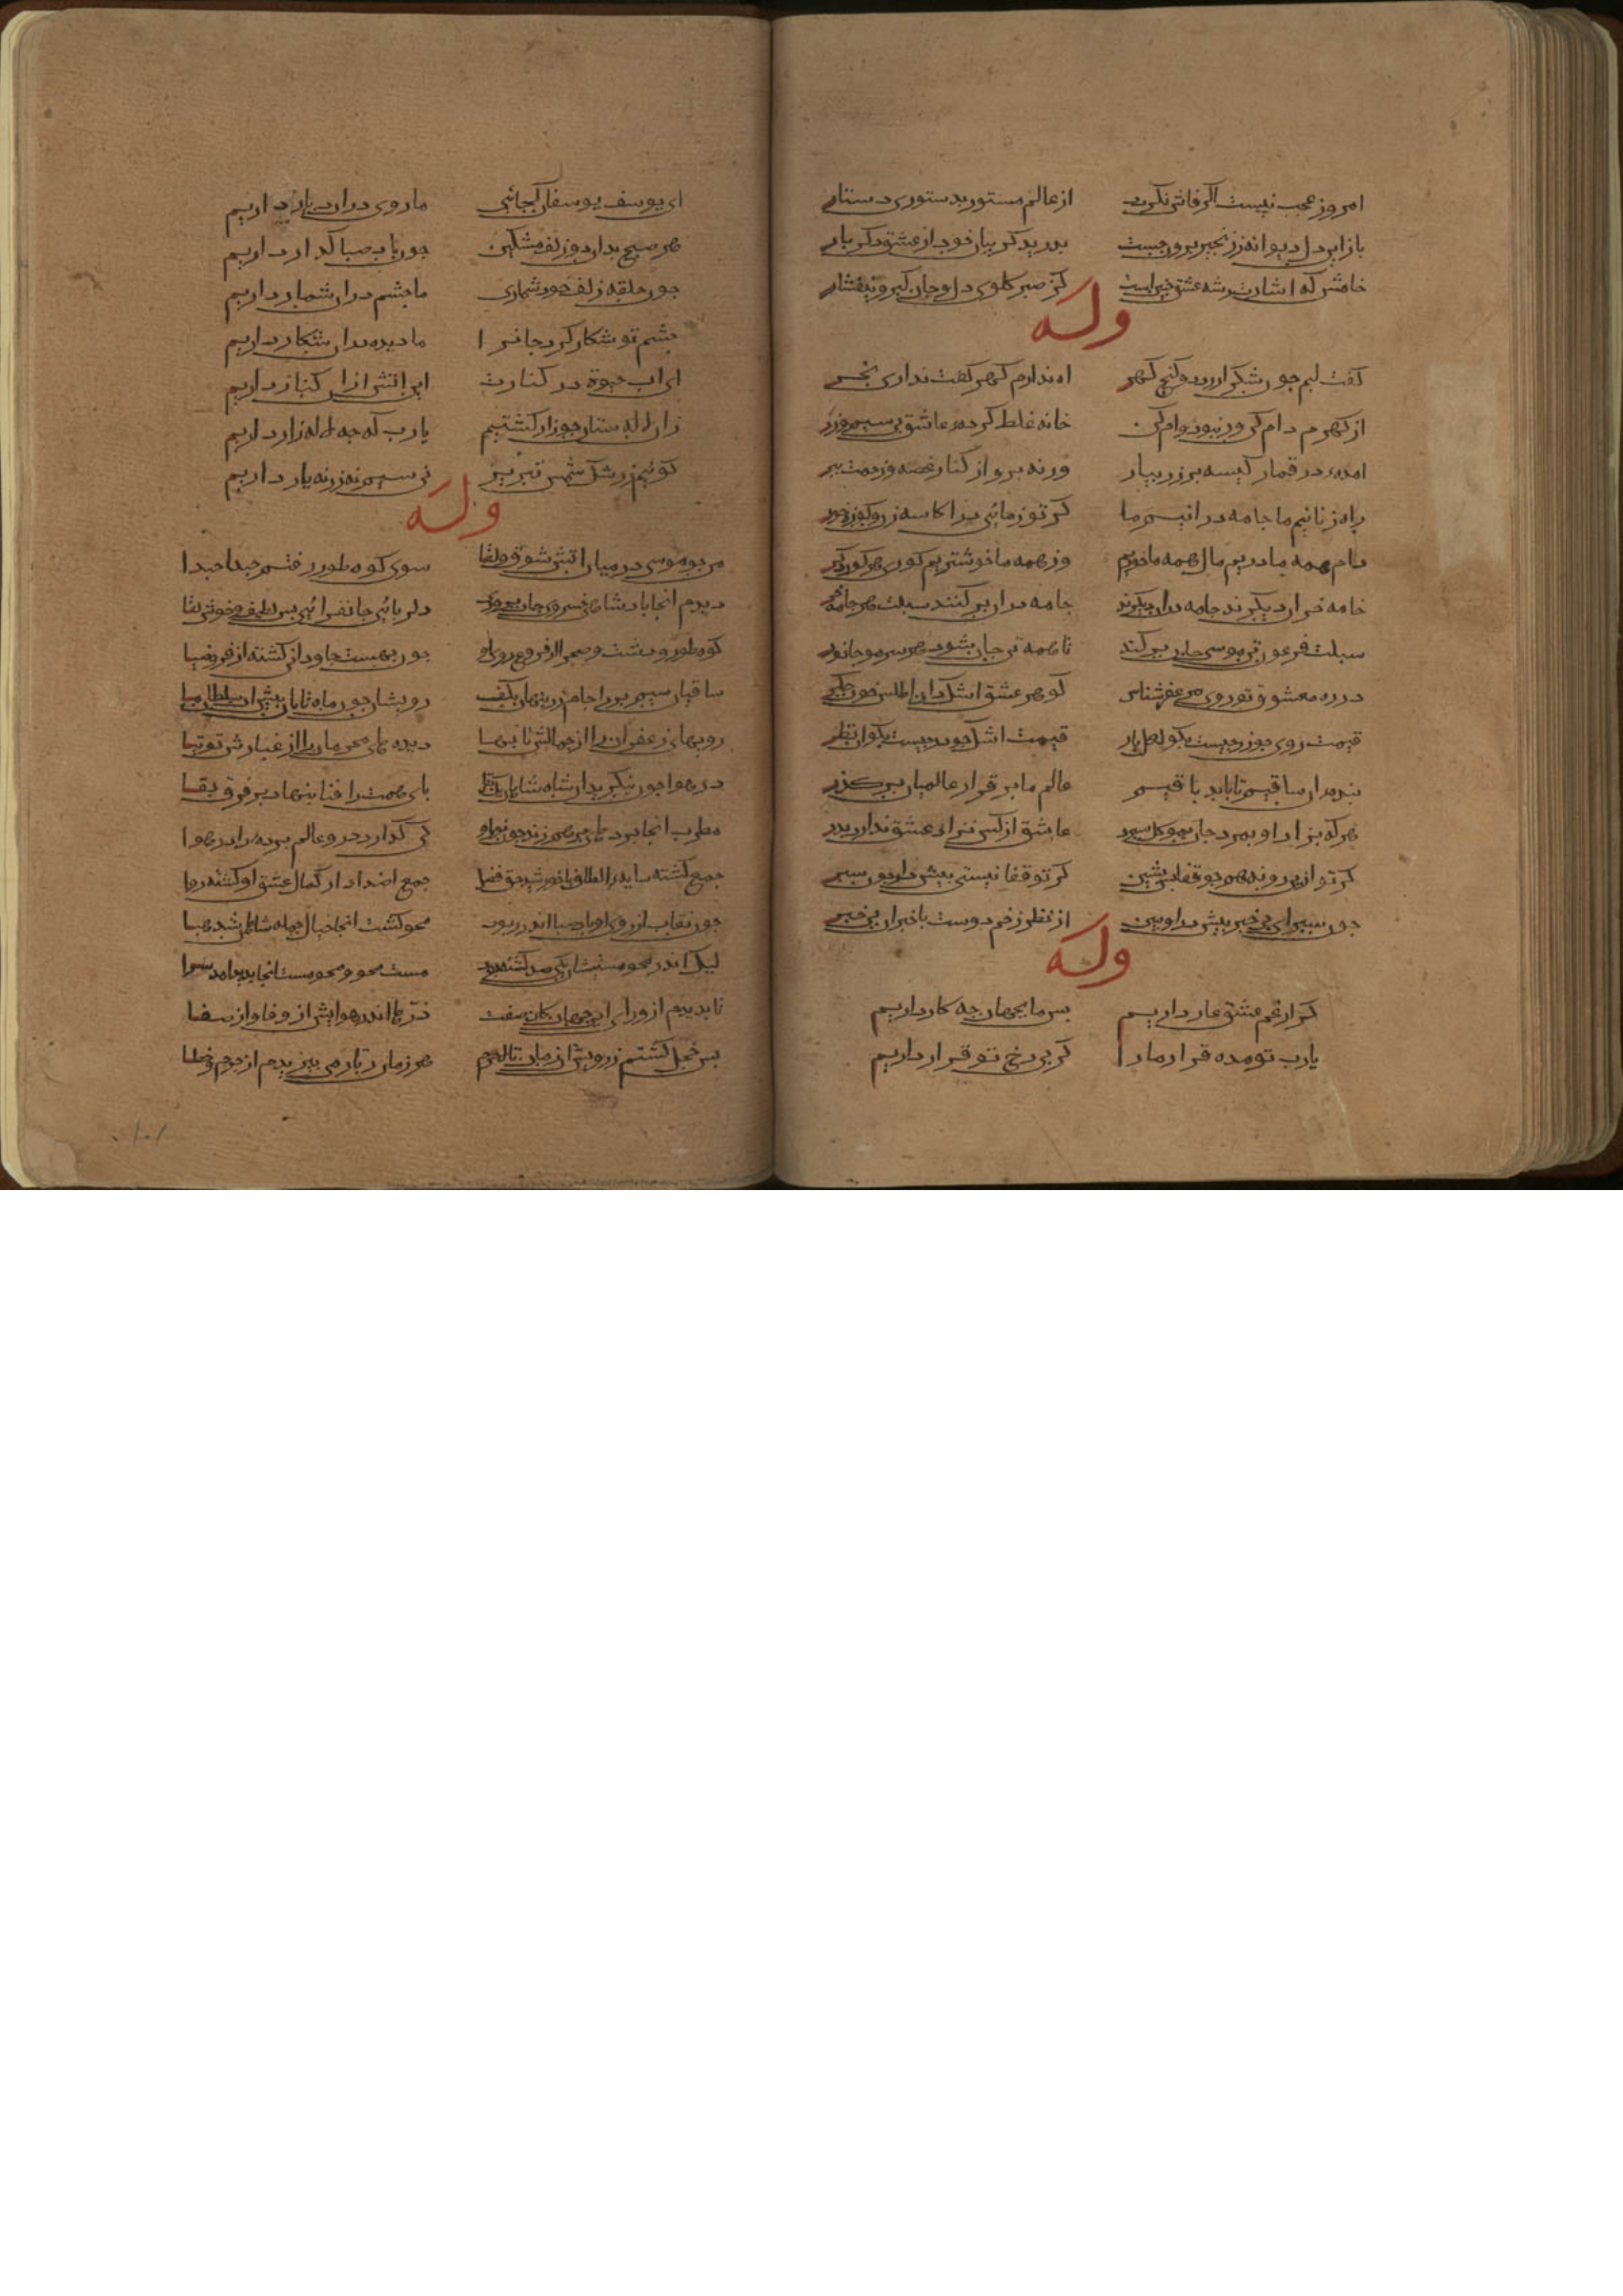 امروز عجب نیست اگر فاش نکردد از عالم مستور بدستوری دستار
باز این دل دیوانه ز زنجیر برون جست بدرید کریبان خود از عشق دکر بار
خامش که اشارت ز شه عشق چنین است کز صبر کلوی دل و جان کیر و بیفشار
وله
کفت لبم چون شکر ارزد و کنج کهر اه ندارم کهر کفت نداری بخر
از کهرم دام کن ور نبود وام کن خانه غلط کرده عاشق بی سیم و زر
امده در قمار کیسه پر زر بیار ور نه برو از کنار غصه و زحمت ببر
راه زنانیم ما جامه درانیم ما کر تو ز مائی درا کاسه زن و کوزه خور
دام همه ما دریم مال همه ما خوریم وز همه ما خوشتریم کوری هر کور و کر
جامه خران دیکرند جامه دران دیکرند جامه دران بر کنند سبلت هر جامه خر
سبلت فرعون تن موسی جان بر کند تا همه تن جان شود هر سر مو جانور
در ره معشوق تو روی می عفر شناس کوهر عشق اشک دان اطلس خون جکر
قیمت روی چو زر چیست بکو لعل یار قیمت اشک چو در چیست بکو ان نظر
بنده ان ساقیم تا بابد باقیم عالم ما بر قرار عالمیان بر کذر
هر که بزاد او بمرد جان بموکل سپرد عاشق از کس نزاد عشق ندارد پدر
کر تو ازین رو نه همچو قفا پس نشین کر تو قفا نیستی پیش درا چون سپر
چون سپر ای بی خبر پیش درا و ببین از نظر زخم دوست با خبران بی خبر
وله
کر از غم عشق عار داریم پس ما بجهان چه کار داریم
یارب تو مده قرار ما را کر بی رخ تو قرار داریم
ای یوسف یوسفان کجائی ما روی دران دیار داریم
هر صبح بدان دو زلف مشکین چون باد صبا کذار داریم
چون حلقه زلف خود شماری ما چشم دران شمار داریم
چشم تو شکار کرد جانرا ما دیده دران شکار داریم
ای اب حیوة در کنارت این اتش از ان کنار داریم
زان لاله ستان چو زار کشتیم یا رب که چه لاله زار داریم
کوئیم ز رشک شمس تبریز نی سیم نه زر نه یار داریم
وله
من چو موسی در میان اتش شوق و لقا سوی کوه طور رفتم حبذا حبذا
دیدم انجا پادشاهی خسروی جان پروری دلربائی جانفزائی بس لطیف و خوش لقا
کوه طور و دشت و صحرا از فروغ روی او چون بهشت جاودانی کشته از فر و ضیا
ساقیان سیم بر را جام زرینها بکف رویشان چون ماه تابان پیش ان سلطان ما
رویهای زعفرانرا از جمالش تابها دیده های محرمان را از غبارش توتیا
در هوا چون بنکرید ان شاه شاهان یک نظر پای همت را فنا بنهاد بر فرق بقا
مطرب انجا پرده ها بر هم زند چون نور او کی کذارد در دو عالم پرده را در هوا
جمع کشته سایه الطاف با خورشید حق فضا جمع اضداد از کمال عشق او کشته روا
چون نقاب از روی او باد صبا اندر ربود محو کشت انجا خیال جمله شان شد هبا
لیک اندر محو هستیشان یکی صد کشته بود هست محو و محو هست انجا پدید امد مرا
تا بدیدم از ورای این جهان جان صفت ذره ها اندر هوایش از وفا و از صفا
بس خجل کشتم ز رویش ان زمان تا لاجرم هر زمان زنار می ببریدم از جور و خطا